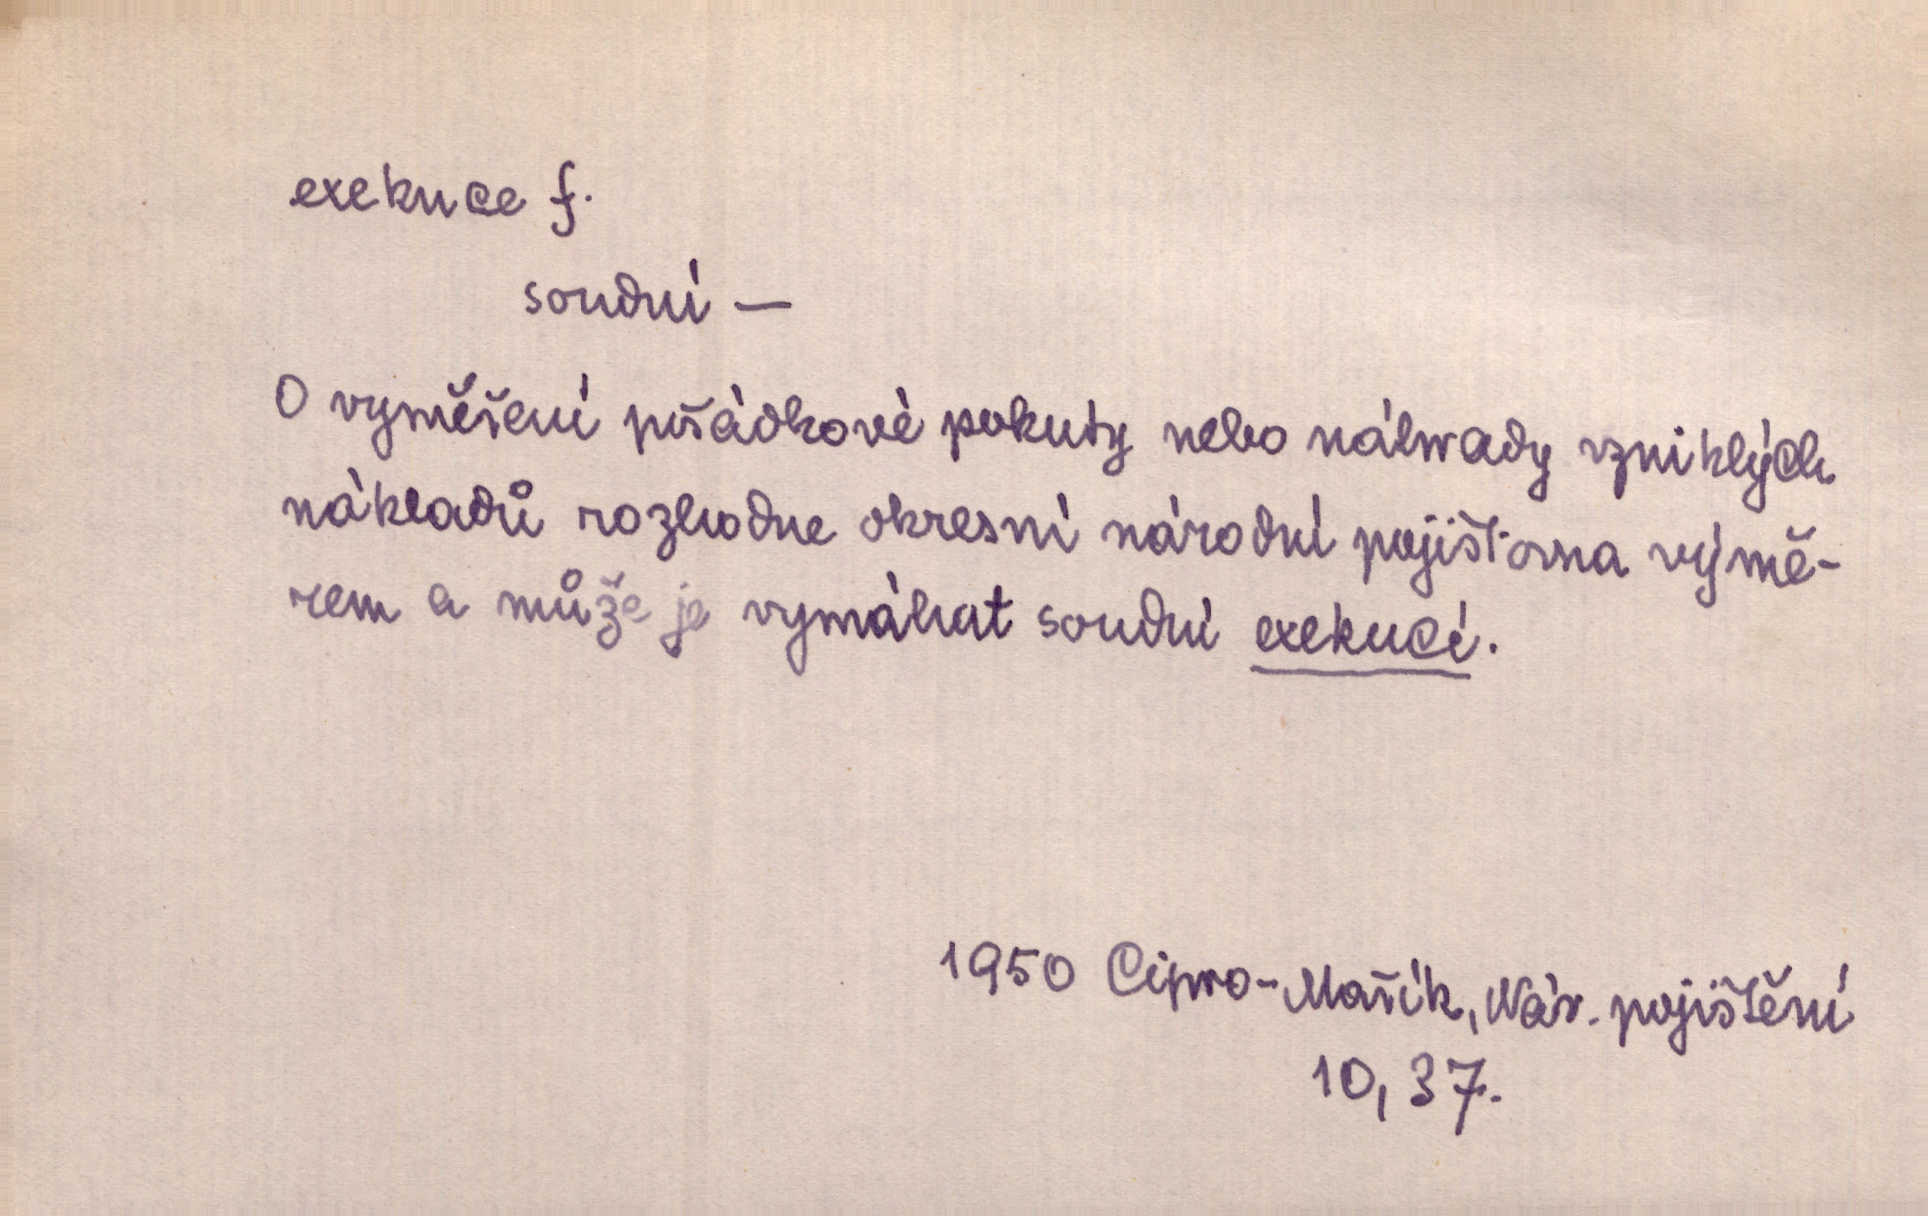 exekuce f.
soudní —
O vyměření pořádkové pokuty nebo náhrady vzniklých
nákladů rozhodne okresní národní pojišťovna výmě-
rem a může je vymáhat soudní exekucí.
1950 Cipro-Mařík, Nár. pojištění
10, 37.